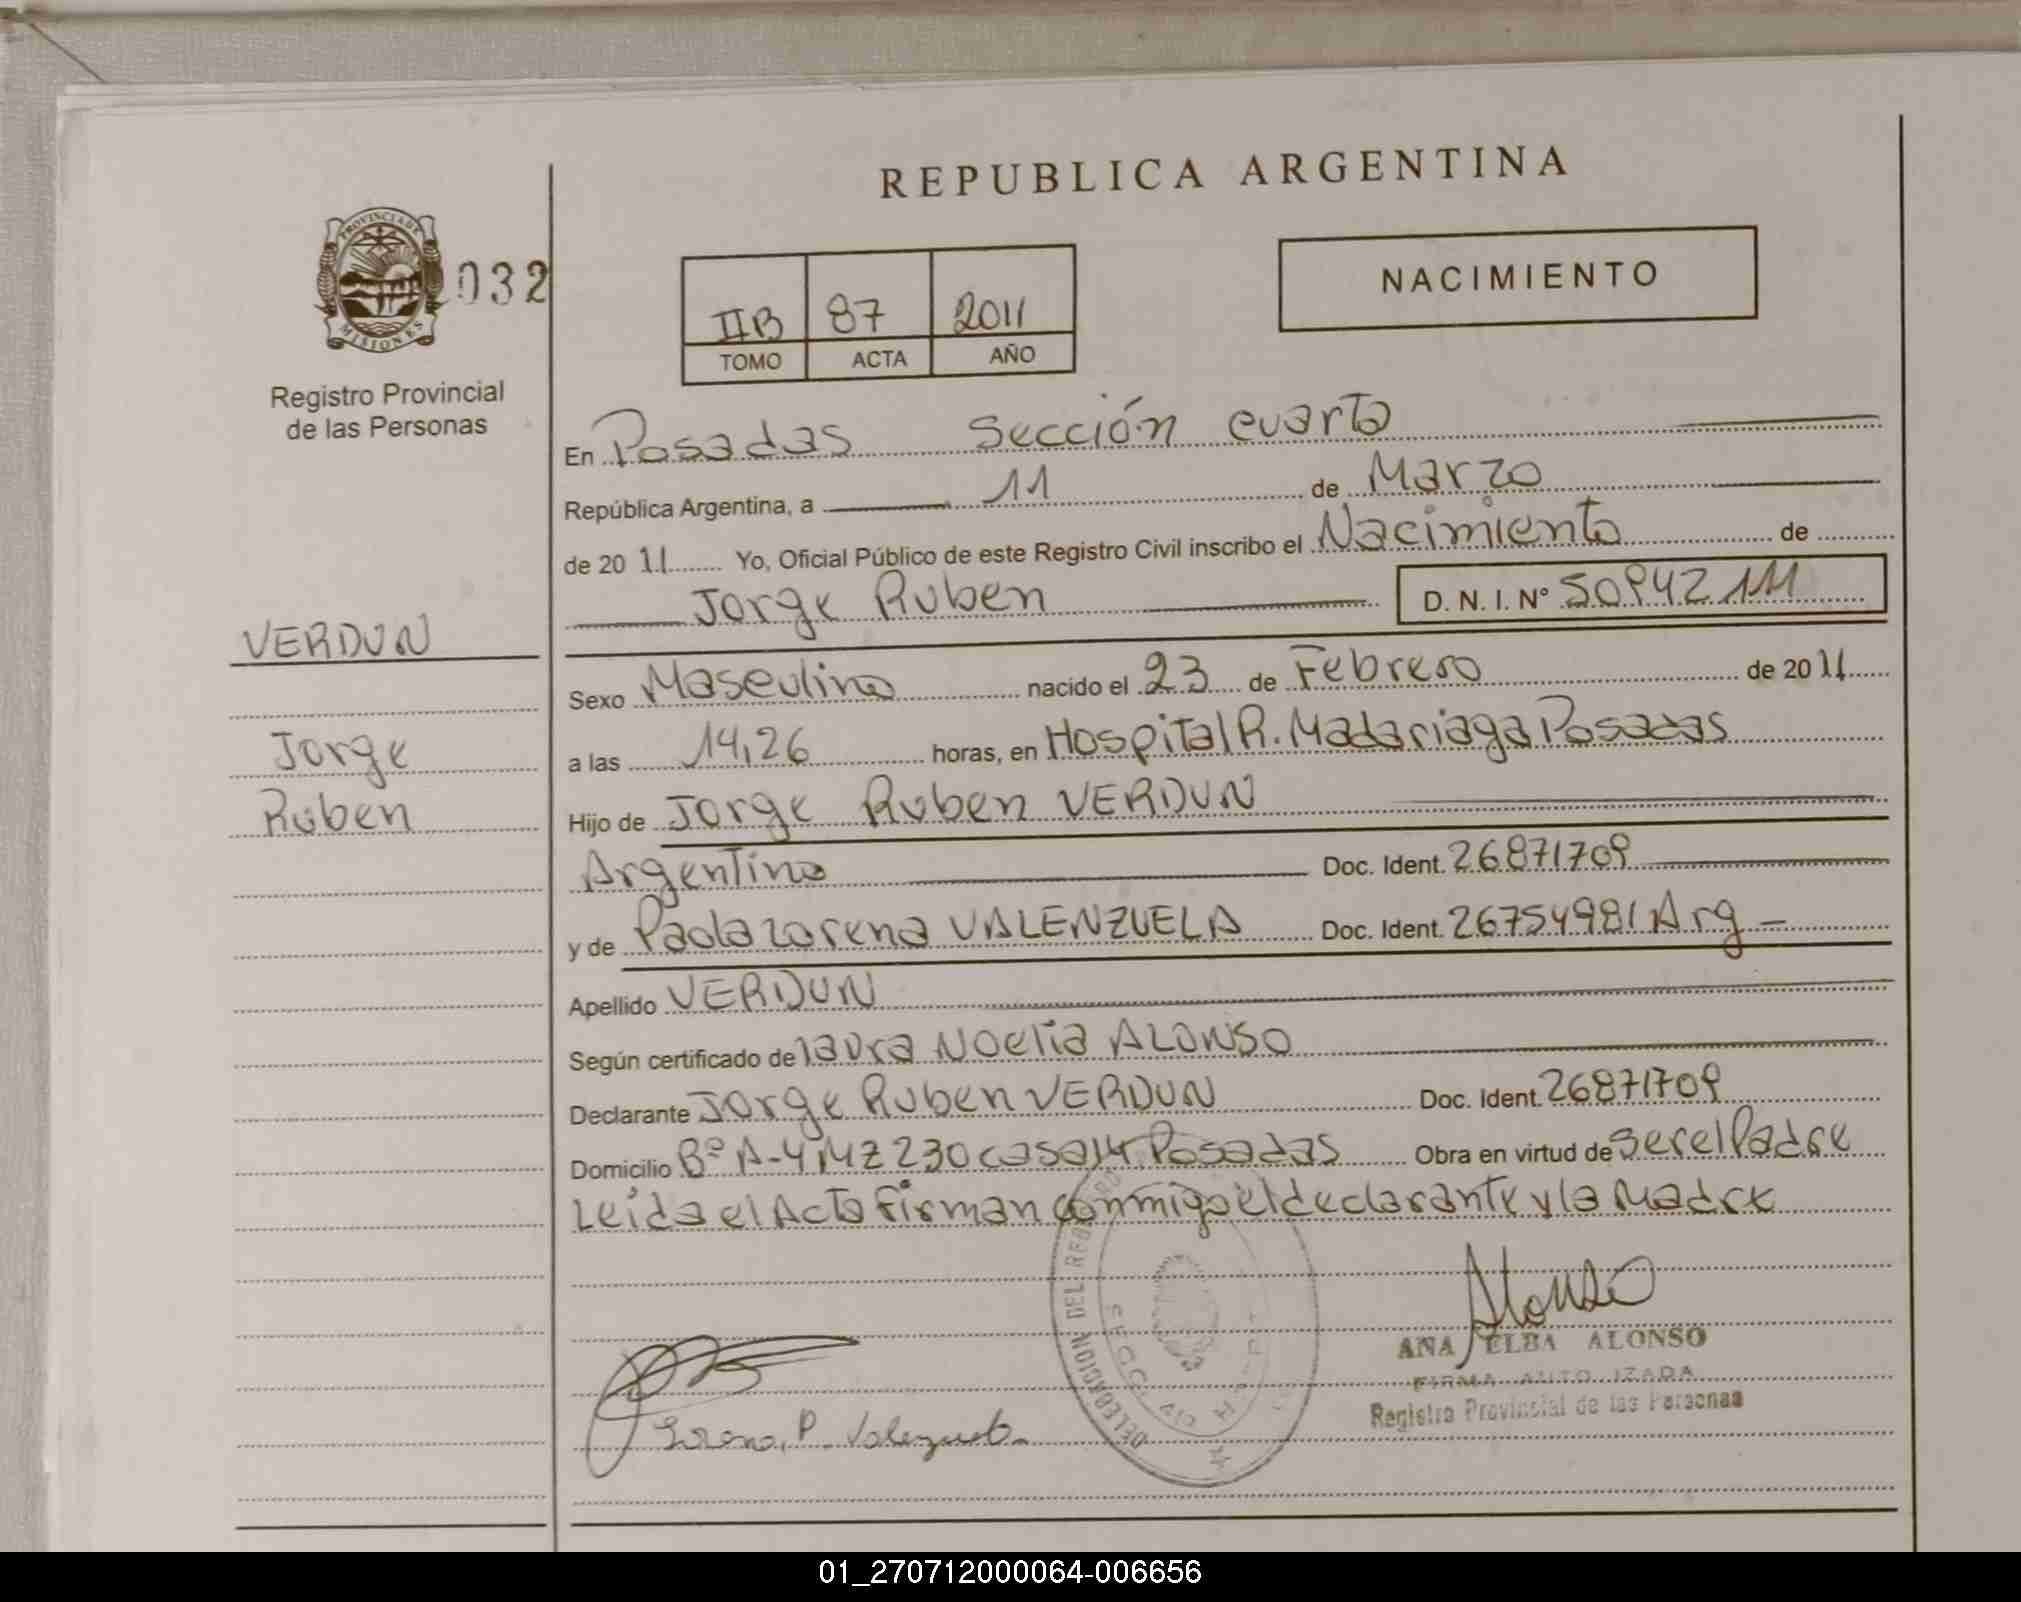 REPUBLICA ARGENTINA
PROVINCIA DE MISIONES
032
Registro Provincial
de las Personas
IIB 87 2011
TOMO ACTA AÑO
NACIMIENTO
En Posadas Sección cuarta
República Argentina, a 11 de Marzo
de 20 11 Yo, Oficial Público de este Registro Civil inscribo el Nacimiento de
Jorge Ruben D. N. I. Nº 50942111
VERDUN
Jorge
Ruben
Sexo Masculino nacido el 23 de Febrero de 20 11
a las 14,26 horas, en Hospital R. Madariaga Posadas
Hijo de Jorge Ruben VERDUN
Argentino Doc. Ident. 26871709
y de Paola Lorena VALENZUELA Doc. Ident. 26754981 Arg
Apellido VERDUN
Según certificado de Laura Noelia ALONSO
Declarante Jorge Ruben VERDUN Doc. Ident. 26871709
Domicilio Bº A-4 MZ 230 casa 14 Posadas Obra en virtud de ser el Padre
Leida el Acta firman conmigo el declarante y la Madre
DELEGACION DEL
Alonso
ANA ELBA ALONSO
FIRMA AUTO IZADA
Registro Provincial de las Personas
Lorena P. Valenzuela
01_270712000064-006656